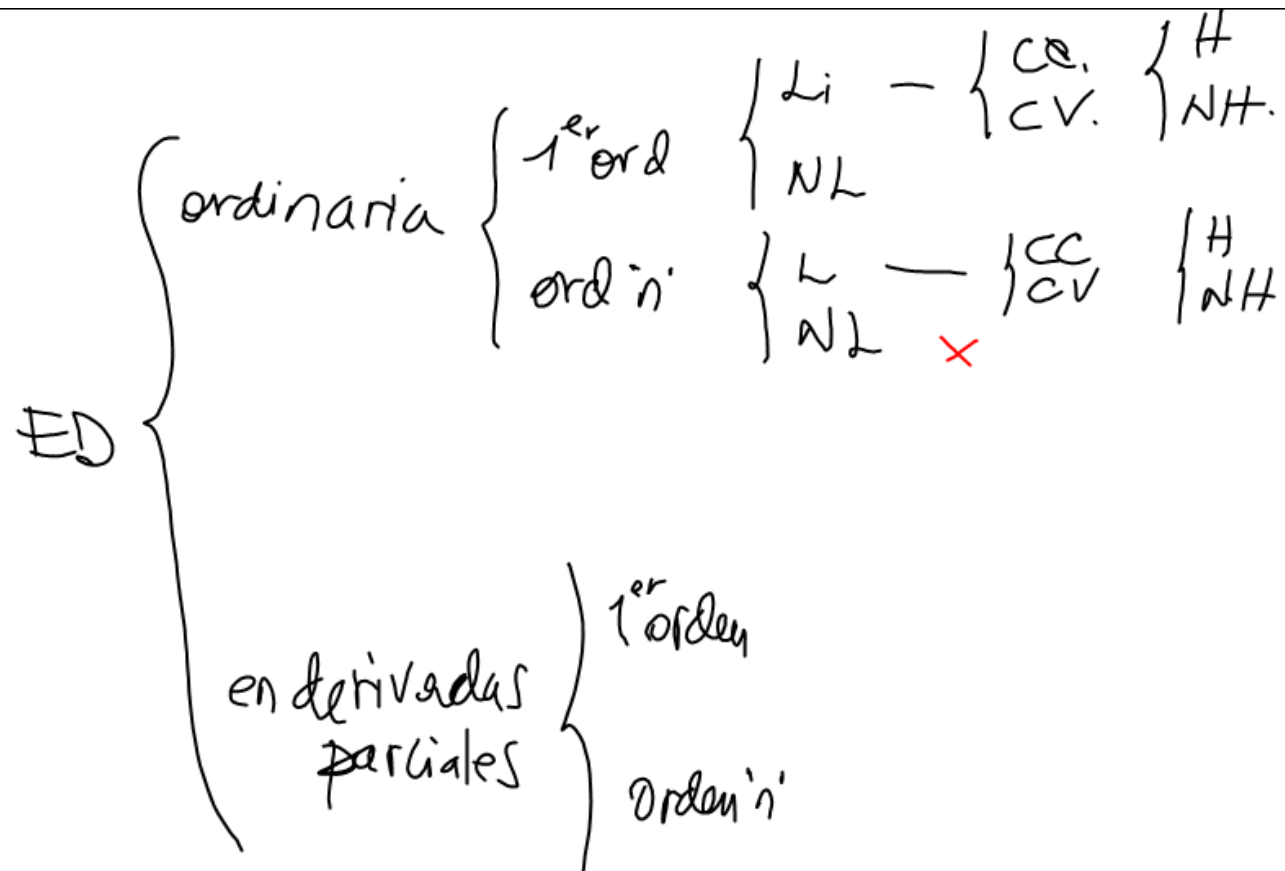 ED
ordinaria
1er ord
Li — CC. H
CV. NH.
NL
ord 'n'
L — CC H
CV NH
NL ×
en derivadas
parciales
1er orden
orden 'n'